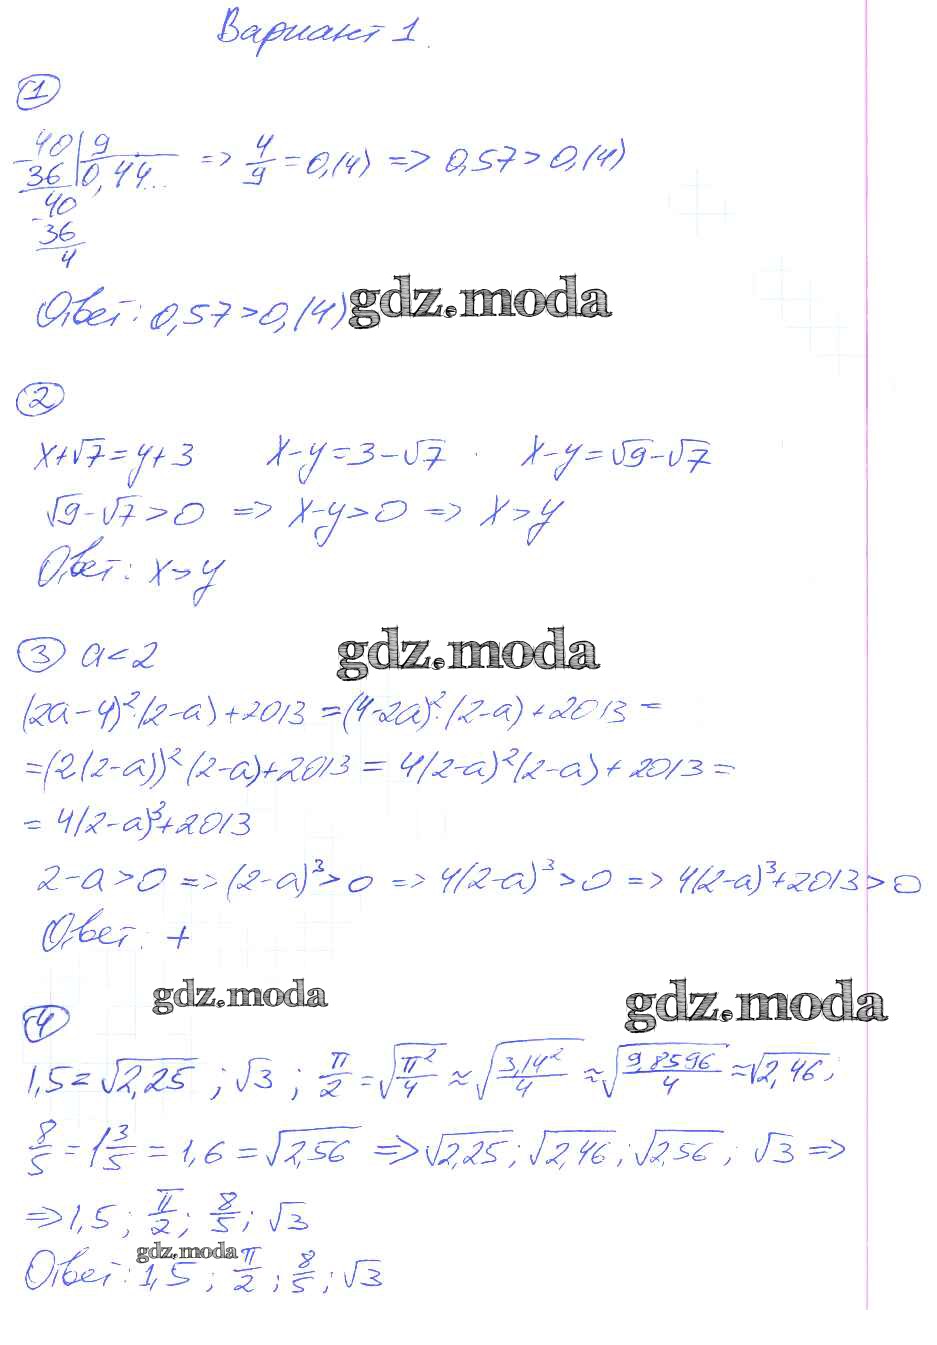 Вариант 1.
1
40 | 9 => 4/9 = 0,(4) => 0,57 > 0,(4)
-36 | 0,44...
40
-36
4
Ответ: 0,57 > 0,(4)
gdz.moda
2
x+√7 = y+3 x-y = 3-√7 . x-y = √9-√7
√9-√7 > 0 => x-y > 0 => x > y
Ответ: x > y
3 a < 2
gdz.moda
(2a-4)²·(2-a)+2013 = (4-2a)²·(2-a)+2013 =
=(2(2-a))²(2-a)+2013 = 4(2-a)²(2-a)+2013 =
= 4(2-a)³+2013
2-a > 0 => (2-a)³ > 0 => 4(2-a)³ > 0 => 4(2-a)³+2013 > 0
Ответ: +
gdz.moda
gdz.moda
4
1,5 = √2,25 ; √3 ; π/2 = √(π²/4) ≈ √(3,14²/4) ≈ √(9,8596/4) ≈ √2,46;
8/5 = 1 3/5 = 1,6 = √2,56 => √2,25; √2,46; √2,56; √3 =>
=> 1,5; π/2; 8/5; √3
gdz.moda
Ответ: 1,5; π/2; 8/5; √3